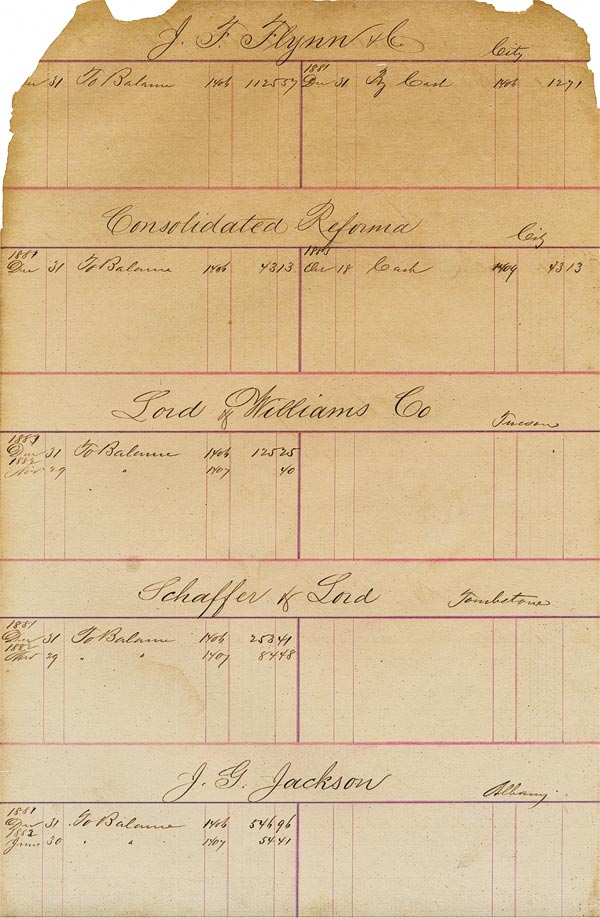 J. F. Flynn & C City
31 To Balance 1406 112557 1881 Dec 31 By Cash 1406 1271
Consolidated Reforma City
1881
Dec 31 To Balance 1406 4313 18 Cash 1409 4313
Lord & Williams Co Tucson
1881
Dec 31 To Balance 1406 12525
1882
Nov 29 " 1407 40
Schaffer & Lord Tombstone
1881
Dec 31 To Balance 1406 25341
1882
Nov 29 " " 1407 8448
J. G. Jackson Albany
1881
Dec 31 To Balance 1406 54696
1882
June 30 " " 1407 5441